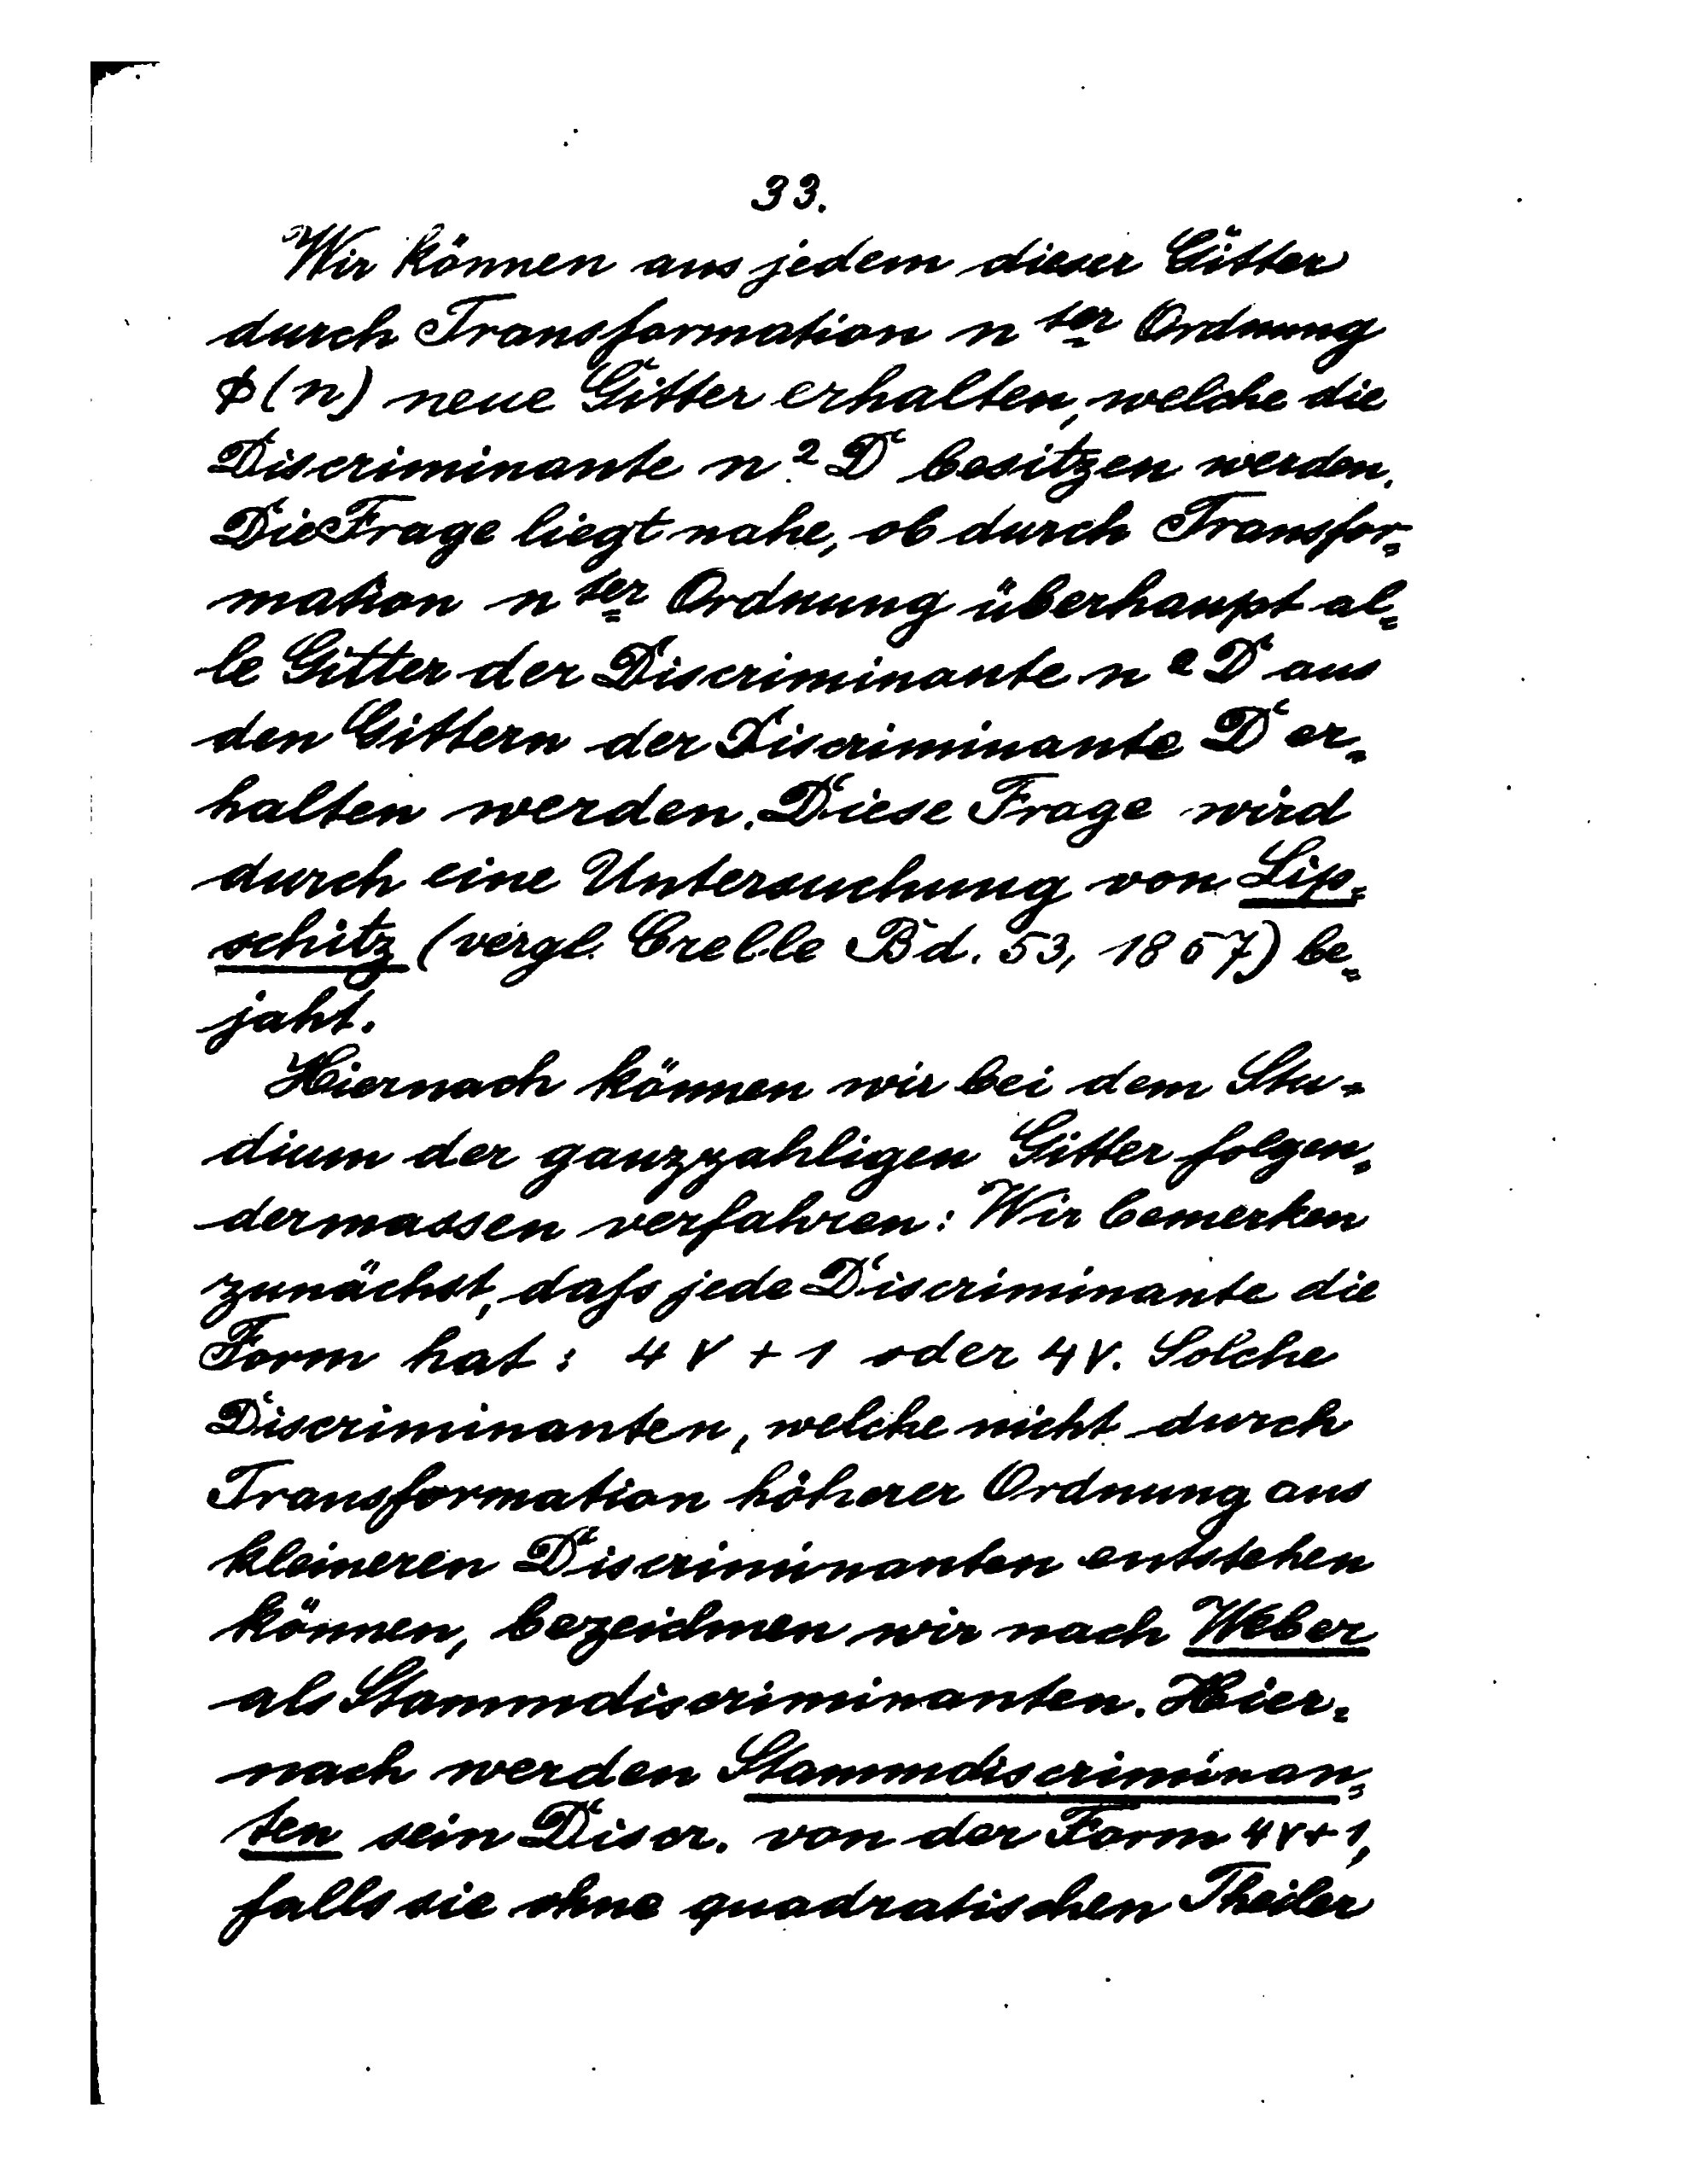 33.
Wir können aus jedem dieser Gitter
durch Transformation n ter Ordnung
ϕ(n) neue Gitter erhalten, welche die
Discriminante n² D besitzen werden.
Die Frage liegt nahe, ob durch Transfor=
mation n ter Ordnung überhaupt al=
le Gitter der Discriminante n² D aus
den Gittern der Discriminante D er=
halten werden. Diese Frage wird
durch eine Untersuchung von Lip=
schitz (vergl. Crelle Bd. 53, 1857) be=
jaht.
Hiernach können wir bei dem Stu=
dium der ganzzahligen Gitter folgen=
dermassen verfahren: Wir bemerken
zunächst, dafs jede Discriminante die
Form hat: 4ν + 1 oder 4ν. Solche
Discriminanten, welche nicht durch
Transformation höherer Ordnung aus
kleineren Discriminanten entstehen
können, bezeichnen wir nach Weber
als Stammdiscriminanten. Hier=
nach werden Stammdiscriminan=
ten sein Discr. von der Form 4ν+1,
falls sie ohne quadratischen Theiler